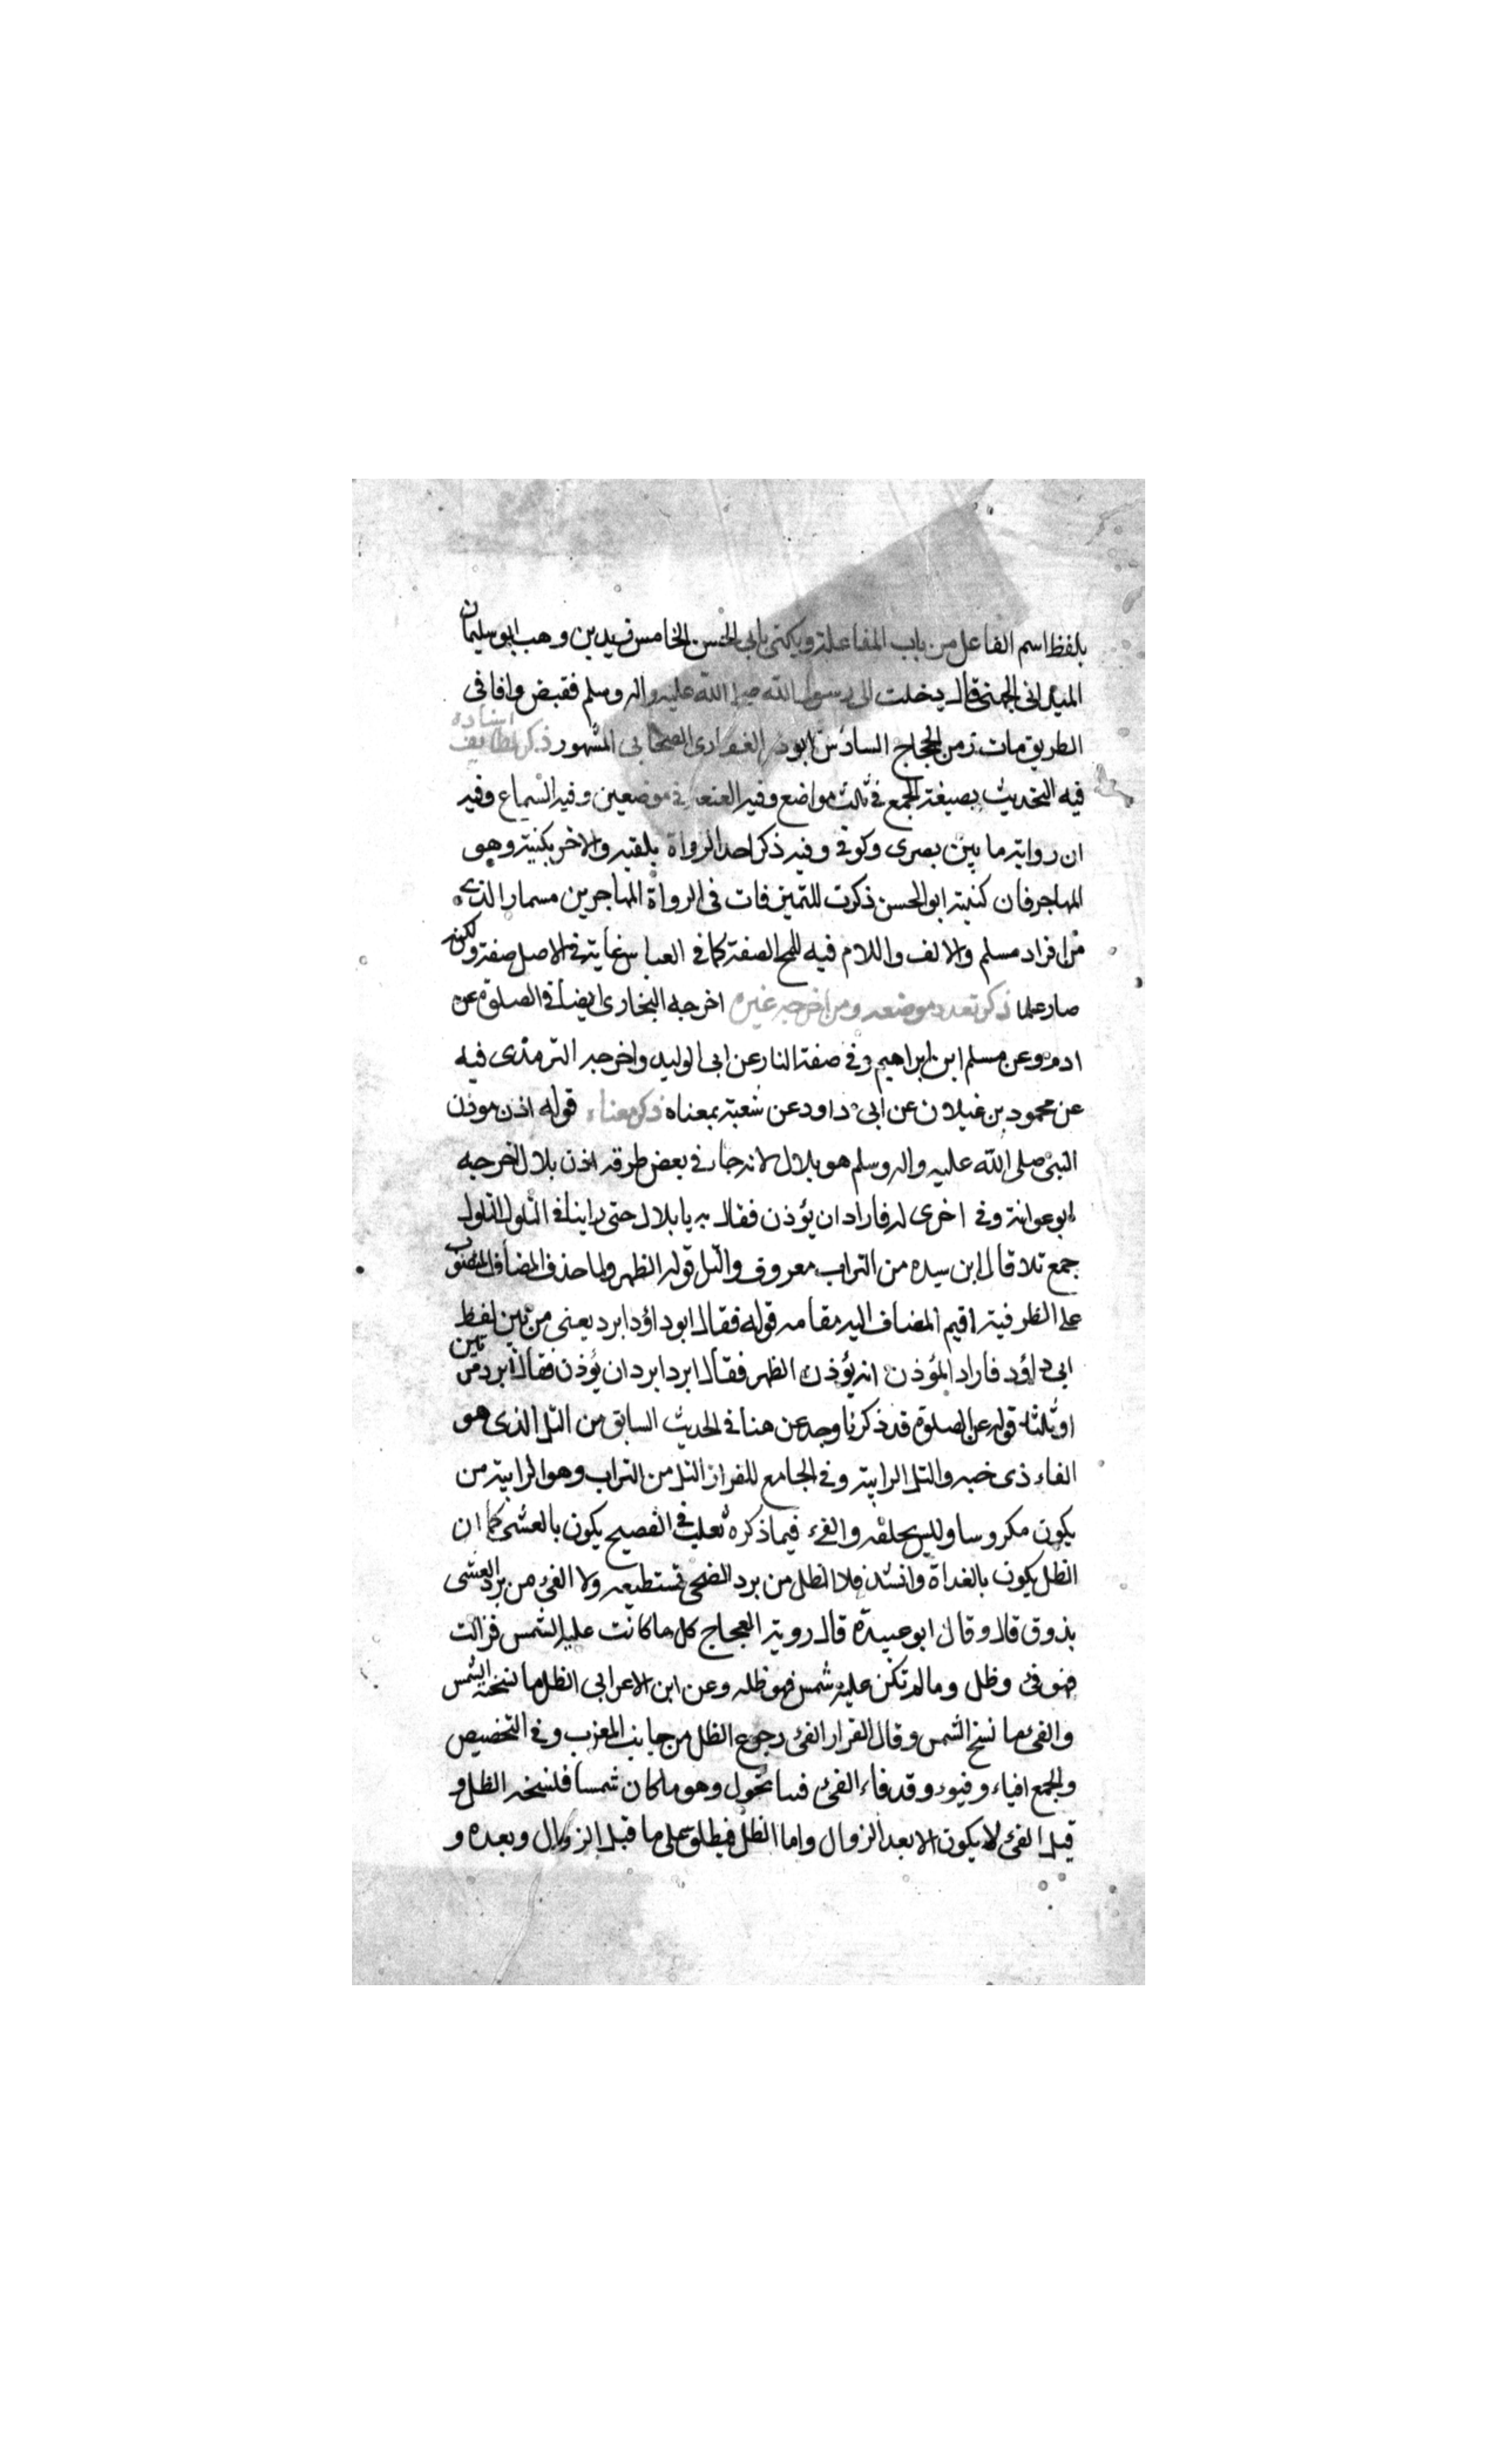 بلفظ اسم الفاعل من باب المفاعلة ويكنى بابي الحسن الخامس زيد بن وهب ابو سليمان
الجهنى قال دخلت الى رسول الله صلى الله عليه واله وسلم فقبض وانا فى
الطريق مات زمن الحجاج السادس ابو ذر الغفارى الصحابى المشهور ذكر لطايف اسناده
فيه التحديث بصيغة الجمع فى ثالث مواضع وفيه العنعنة فى موضعين وفيه السماع وفيه
ان رواية ما بين بصرى وكوفى وفيه ذكر احد الرواة بلقبه والاخر بكنيته وهو
المهاجر فان كنيته ابو الحسن ذكرت للتميز فات فى الرواة المهاجرين مسمار الذى
من افراد مسلم والالف واللام فيه للمح الصفة كما فى العباس فى الاصل صفة ولكنه
صار علما ذكر تعدد موضعه ومن اخرجه غيره اخرجه البخارى ايضا فى الصلوة عن
ادم وعن مسلم ابن ابراهيم وفى صفة النار عن ابى الوليد واخرجه الترمذى فيه
عن محمود بن غيلان عن ابى داود عن شعبة بمعناه ذكر معناه قوله اذن موذن
النبى صلى الله عليه واله وسلم هو بلال لانه جاء فى بعض طرقه اذن بلال اخرجه
ابو عوانة وفى اخرى له فاراد ان يؤذن فقال به يا بلال حتى راينا فى التلول التلول
جمع تلا قال ابن سيده من التراب معروف والتل قوله الظهر ولما حذف المضاف المنصوب
على الظرفية اقيم المضاف اليه مقامه قوله فقال ابو داؤد ابرد يعنى مرتين لفظ
ابى داؤد فاراد المؤذن ان يؤذن الظهر فقال ابرد ابرد ان يؤذن فقال ابرد مرتين
او ثلثا قوله عن الصلوة قد ذكرنا وجه عن هنا فى الحديث السابق من التل الذى هو
الفاء ذى خبه والتل الرابية وفى الجامع للفراز التل من التراب وهو الرابية من
يكون مكروسا وليس بحلقه والفىء فيما ذكره ثعلب فى الفصيح يكون بالعشى كما ان
الظل يكون بالغداة وانشد فلا الظل من برد الضحى تستطيعه ولا الفىء من برد العشى
يذوق قال وقال ابو عبيدة قال روبة العجاج كل ما كانت عليه الشمس فزالت
فهو فىء وظل وما لم تكن عليه شمس فهو ظله وعن ابن الاعرابى الظل ما نسخته الشمس
والفىء ما نسخ الشمس وقال القرار الفىء رجوع الظل من جانب المغرب وفى التخصيص
والجمع افياء وفيوء وقد فاء الفىء فيئا تحول وهو ما كان شمسا فلنسخه الظل و
قيل الفىء لا يكون الا بعد الزوال واما الظل فيطلق على ما قبل الزوال وبعده و